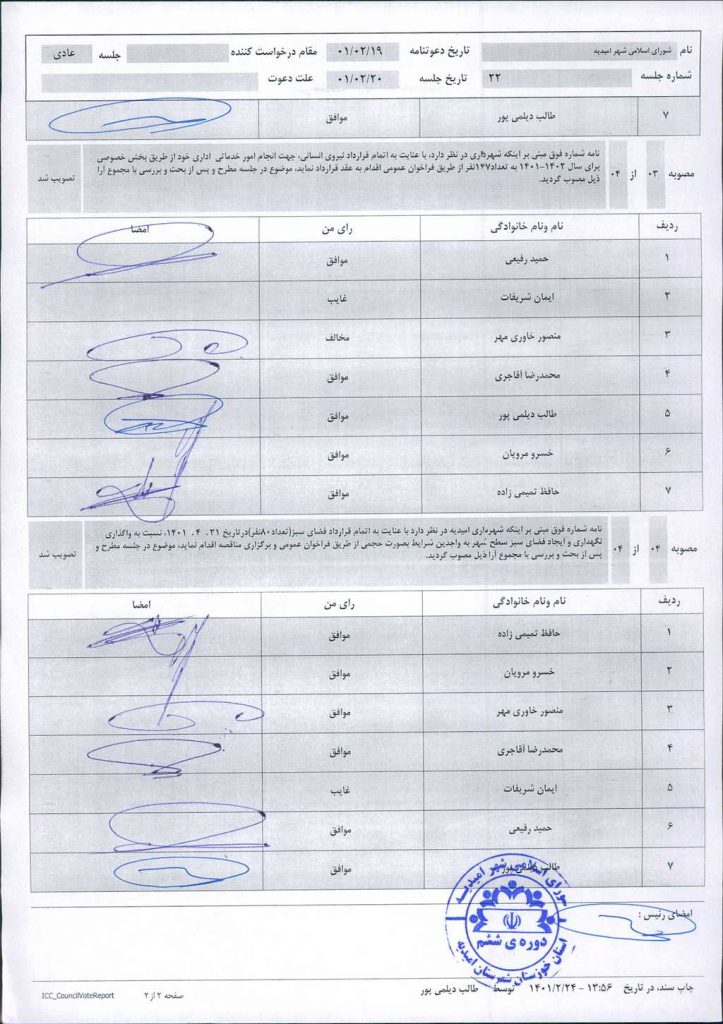 نام شورای اسلامی شهر امیدیه تاریخ دعوتنامه ۰۱/۰۲/۱۹ مقام درخواست کننده جلسه عادی
شماره جلسه ۲۲ تاریخ جلسه ۰۱/۰۲/۲۰ علت دعوت
۷ طالب دیلمی پور موافق
مصوبه ۰۳ از ۰۴
نامه شماره فوق مبنی بر اینکه شهرداری در نظر دارد، با عنایت به اتمام قرارداد نیروی انسانی، جهت انجام امور خدماتی اداری خود از طریق بخش خصوصی
برای سال ۱۴۰۲-۱۴۰۱ به تعداد۱۴۷نفر از طریق فراخوان عمومی اقدام به عقد قرارداد نماید، موضوع در جلسه مطرح و پس از بحث و بررسی با مجموع آرا
ذیل مصوب گردید.
تصویب شد
ردیف نام ونام خانوادگی رای من امضا
۱ حمید رفیعی موافق
۲ ایمان شریفات غایب
۳ منصور خاوری مهر مخالف
۴ محمدرضا آقاجری موافق
۵ طالب دیلمی پور موافق
۶ خسرو مرویان موافق
۷ حافظ تمیمی زاده موافق
مصوبه ۰۴ از ۰۴
نامه شماره فوق مبنی بر اینکه شهرداری امیدیه در نظر دارد با عنایت به اتمام قرارداد فضای سبز(تعداد۸۰نفر)درتاریخ ۳۱ . ۴ . ۱۴۰۱، نسبت به واگذاری
نگهداری و ایجاد فضای سبز سطح شهر به واجدین شرایط بصورت حجمی از طریق فراخوان عمومی و برگزاری مناقصه اقدام نماید، موضوع در جلسه مطرح و
پس از بحث و بررسی با مجموع آرا ذیل مصوب گردید.
تصویب شد
ردیف نام ونام خانوادگی رای من امضا
۱ حافظ تمیمی زاده موافق
۲ خسرو مرویان موافق
۳ منصور خاوری مهر موافق
۴ محمدرضا آقاجری موافق
۵ ایمان شریفات غایب
۶ حمید رفیعی موافق
۷ طالب دیلمی پور موافق
شورای اسلامی شهر امیدیه
دوره ی ششم
استان خوزستان شهرستان امیدیه
امضای رئیس :
چاپ سند، در تاریخ ۱۳:۵۶ - ۱۴۰۱/۲/۲۴ توسط طالب دیلمی پور
صفحه ۲ از ۲
ICC_CouncilVoteReport